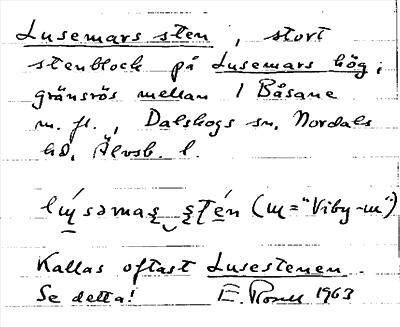 Lusemars sten, stort
stenblock på Lusemars hög,
gränsrös mellan 1 Båsane
m. fl., Dalskogs sn, Nordals
hd, Älvsb. l.
(ɯ = "Viby-ɯ")
Kallas oftast Lusestenen.
Se detta! E. 1963